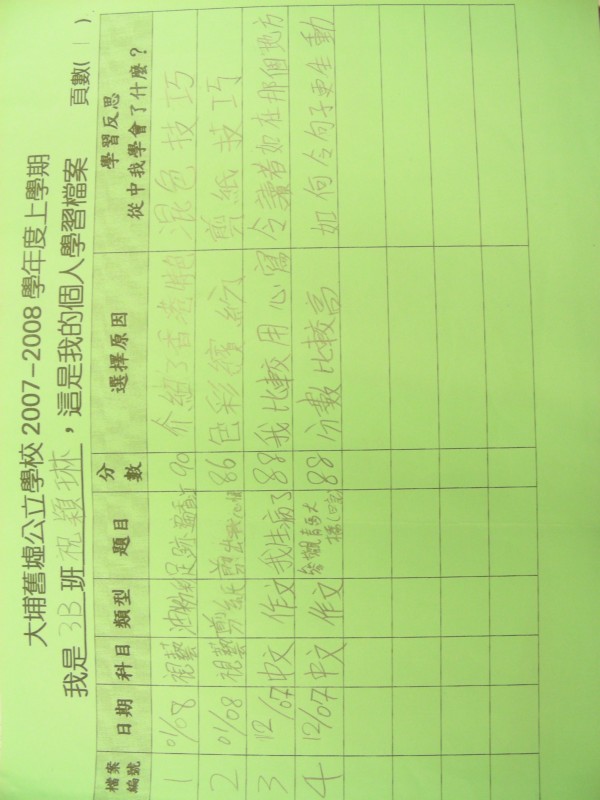 大埔舊墟公立學校 2007-2008 學年度上學期
我是 3B 班 祝穎琳 ，這是我的個人學習檔案 頁數( 1 )
檔案編號 日期 科目 類型 題目 分數 選擇原因 學習反思 從中我學會了什麼？
1 01/08 視藝 油粉彩 足跡 90 介紹了香港 混色技巧
2 01/08 視藝 剪紙 剪出 86 色彩繽紛 剪紙技巧
3 12/07 中文 作文 我生病了 88 我比較用心寫 令讀者如在那個地方
4 12/07 中文 作文 參觀青馬大橋 88 分數比較高 如何令句子更生動